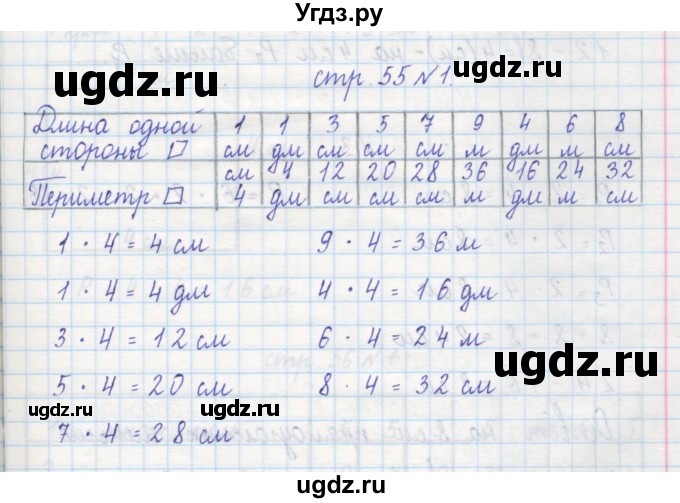 Угдз.ру
12 - 8 = 4 (см) - на 4 см P₂ больше P₁
стр. 55 №1.
Длина одной 1 1 3 5 7 9 4 6 8
стороны □ см дм см см см м дм м см
см 4 12 20 28 36 16 24 32
Периметр □ 4 дм см см см м дм м см
1 · 4 = 4 см 9 · 4 = 36 м
1 · 4 = 4 дм 4 · 4 = 16 дм
3 · 4 = 12 см 6 · 4 = 24 м
5 · 4 = 20 см 8 · 4 = 32 см
7 · 4 = 28 см
ugdz.ru
ugdz.ru
ugdz.ru
ugdz.ru
ugdz.ru
ugdz.ru
ugdz.ru
ugdz.ru